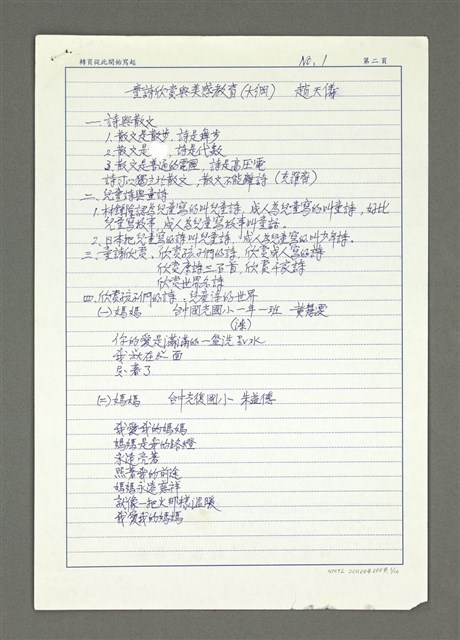 轉頁從此開始寫起
No. 1
第二頁
童詩欣賞與美感教育(大綱) 趙天儀
一. 詩與散文
1. 散文是散步, 詩是舞步
2. 散文是 , 詩是代數
3. 散文是普通的電壓, 詩是高壓電
詩可以獨立於散文, 散文不能離詩
二. 兒童詩與童詩
1. 林鍾隆認為兒童寫的叫兒童詩, 成人為兒童寫的叫童詩, 好比
兒童寫故事, 成人為兒童寫故事叫童話.
2. 日本把兒童寫的詩叫兒童詩, 成人為兒童寫的叫少年詩.
三. 童詩欣賞, 欣賞孩子們的詩, 欣賞成人寫的詩
欣賞唐詩三百首, 欣賞千家詩
欣賞世界名詩
四. 欣賞孩子們的詩, 兒童詩的世界
(一) 媽媽 台中國光國小一年一班 黃慧雯
你的愛是滿滿的一盆洗澡水
我就在裡面
忘著了
(二) 媽媽 台中光復國小 朱益傳
我愛我的媽媽
媽媽是我的路燈
永遠亮著
照著我的前途
媽媽永遠慈祥
就像一把火那樣溫暖
我愛我的媽媽